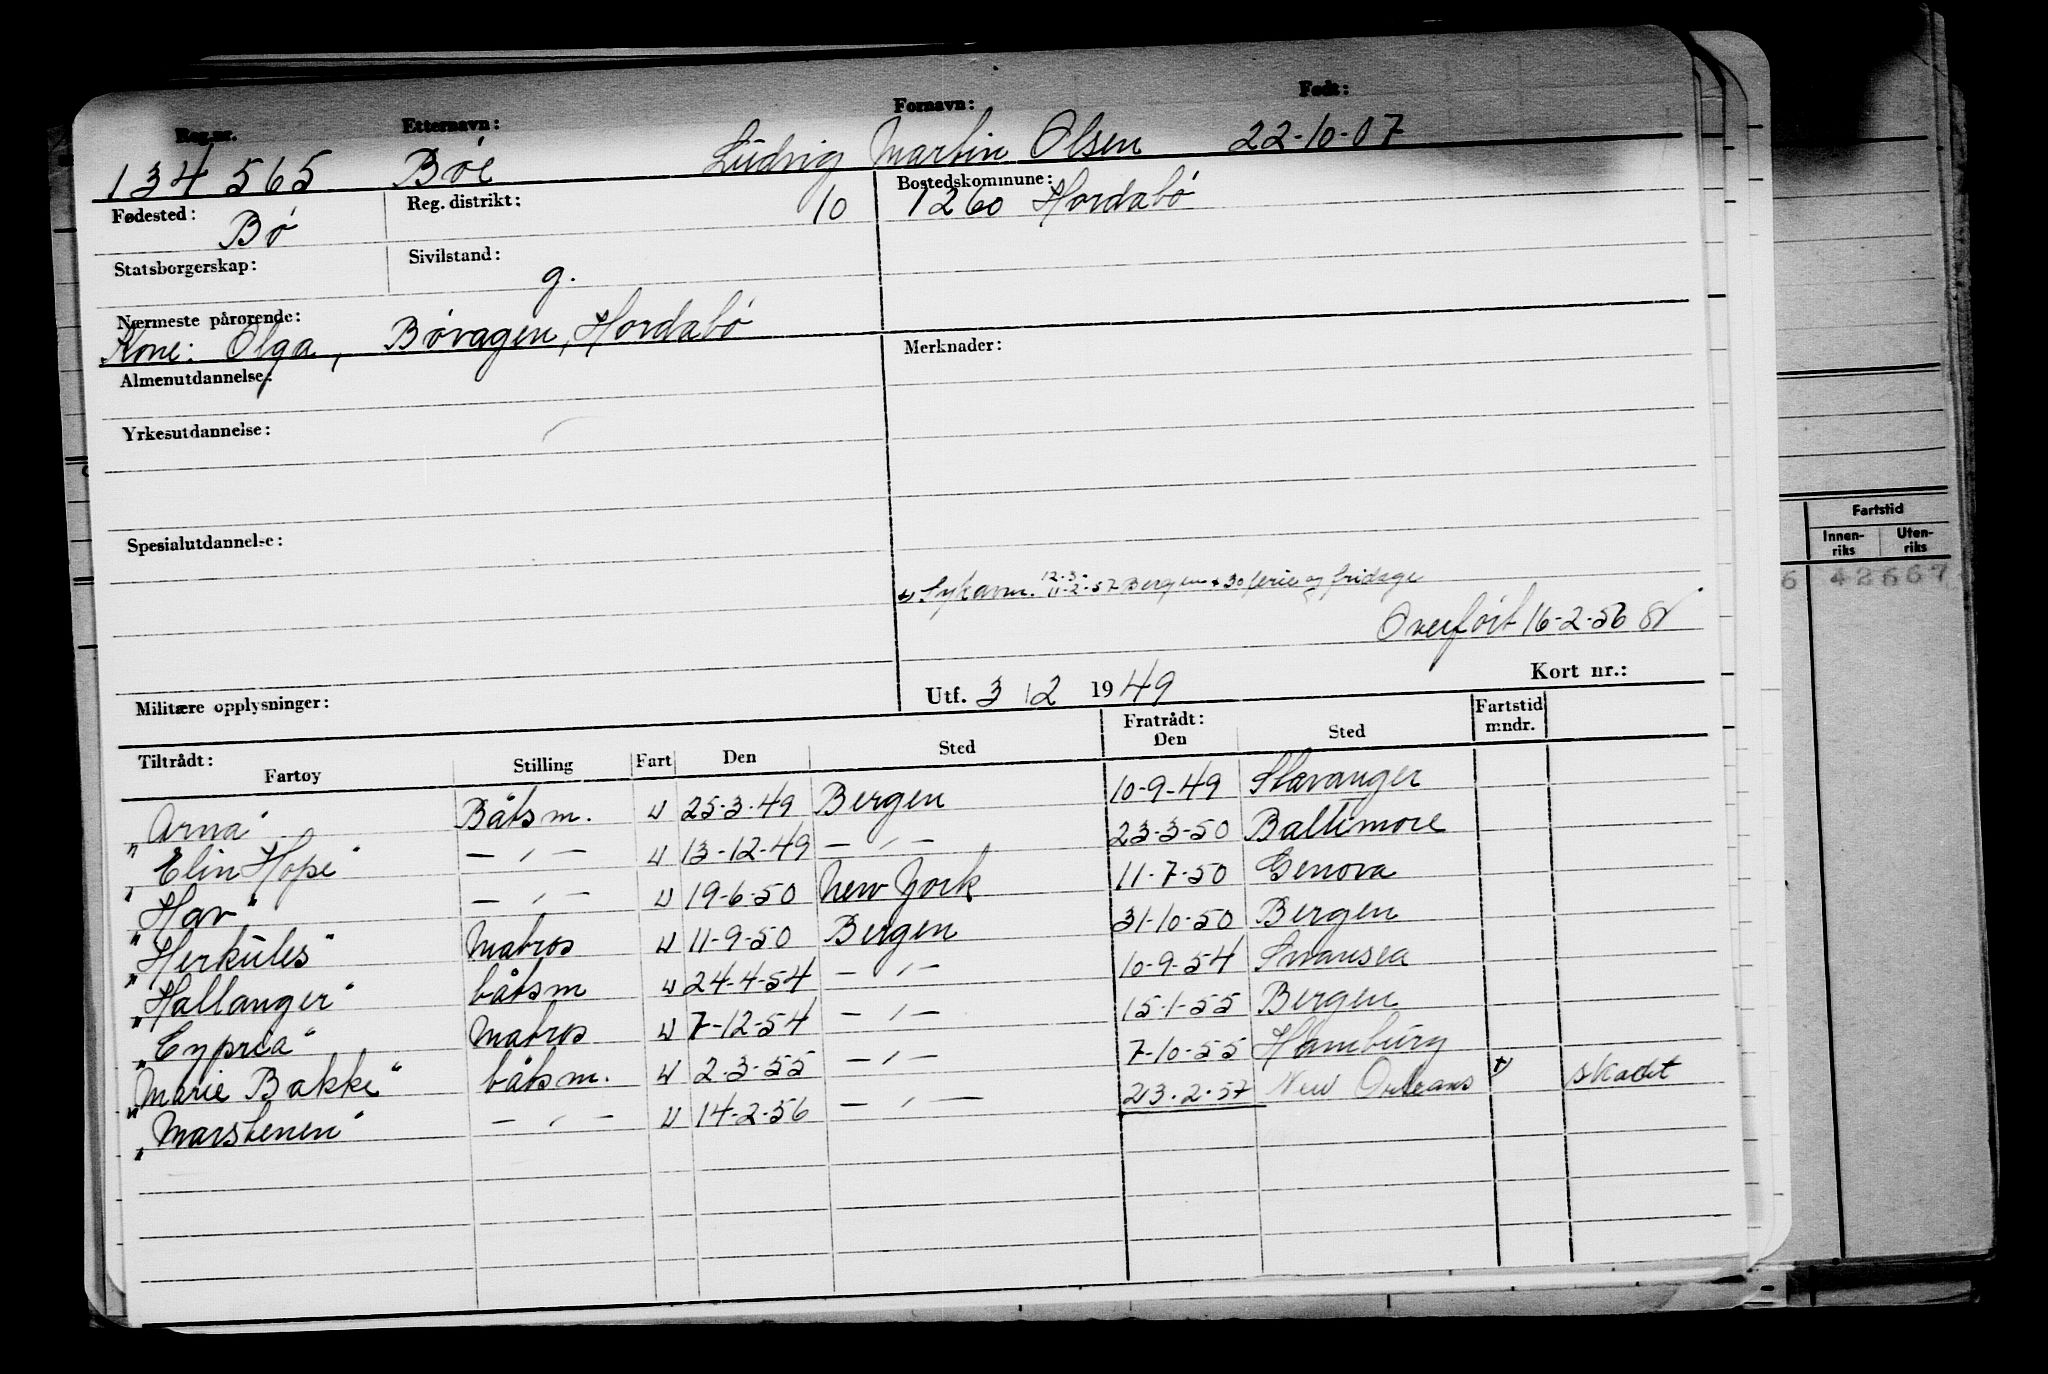 Reg.nr. Etternavn: Fornavn: Født:
134565 Bøe Ludvig Martin Olsen 22-10-07
Fødested: Bø Reg. distrikt: 10 Bostedskommune: 1260 Hordabø
Statsborgerskap: Sivilstand: g.
Nærmeste pårørende:
Kone: Olga, Bøvagen, Hordabø
Almenutdannelse: Merknader:
Yrkesutdannelse:
Spesialutdannelse:
12-3-
Sykavm. 11-2-57 Bergen + 30 ferie og fridage
Overført 16-2-56
Militære opplysninger: Utf. 3 12 1949 Kort nr.:
Tiltrådt: Fratrådt: Fartstid
Fartøy Stilling Fart Den Sted Den Sted mndr.
"Arna" Båtsm. U 25-3-49 Bergen 10-9-49 Stavanger
"Elin Hope" — " — U 13-12-49 — " — 23-3-50 Baltimore
"Hav" — " — U 19-6-50 New York 11-7-50 Genova
"Herkules" Matros U 11-9-50 Bergen 31-10-50 Bergen
"Hallanger" båtsm U 24-4-54 — " — 10-9-54 Swansea
"Cypria" Matros U 7-12-54 — " — 15-1-55 Bergen
"Marie Bakke" båtsm. U 2-3-55 — " — 7-10-55 Hamburg
"Marstenen" — " — U 14-2-56 — " — 23.2.57 New Orleans skadet
Fartstid
Innen-riks Uten-riks
6 42667